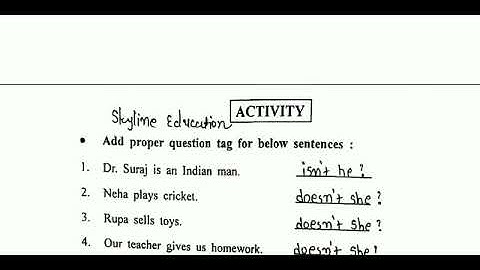 Skyline Education
ACTIVITY
• Add proper question tag for below sentences :
1. Dr. Suraj is an Indian man. isn't he ?
2. Neha plays cricket. doesn't she ?
3. Rupa sells toys. doesn't she ?
4. Our teacher gives us homework. doesn't she ?